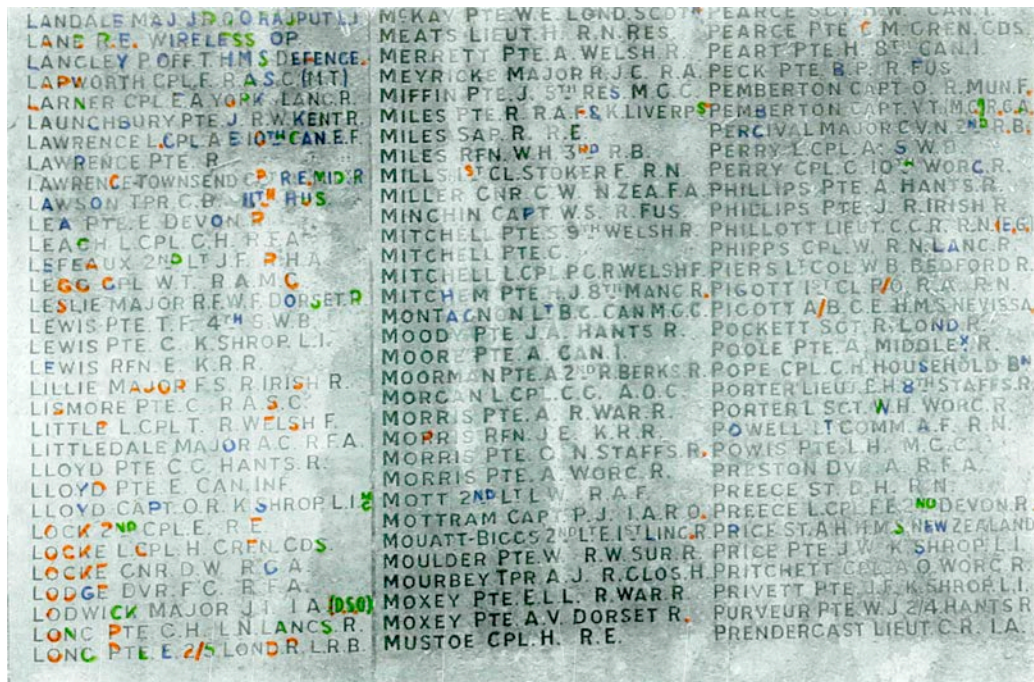 LANDALE MAJ. J.R.
LANE R.E. WIRELESS OP.
LANGLEY P.OFF.T. H.M.S DEFENCE.
LAPWORTH CPL.F. R.A.S.C.(M.T)
LARNER CPL.E.A. YORK. LANC.R.
LAUNCHBURY PTE. J. R.W.KENT R.
LAWRENCE L.CPL. A E 10TH CAN.E.F.
LAWRENCE PTE. R
LAWRENCE-TOWNSEND CPT R.E.MID.R
LAWSON TPR.C.B. 11TH HUS.
LEA PTE.E. DEVON. R
LEACH L.CPL.C.H. R.F.A.
LEFEAUX 2ND LT J.F. R.H.A.
LEGG CPL. W.T. R.A.M.C.
LESLIE MAJOR R.F.W.F. DORSET.R.
LEWIS PTE.T.F. 4TH S.W.B.
LEWIS PTE. C. K.SHROP.L.I.
LEWIS RFN.E. K.R.R.
LILLIE MAJOR F.S. R.IRISH R.
LISMORE PTE.C. R.A.S.C.
LITTLE L.CPL.T. R.WELSH F.
LITTLEDALE MAJOR A.C. R.F.A.
LLOYD PTE. C.C. HANTS.R.
LLOYD PTE.E. CAN.INF.
LLOYD CAPT.O.R. K.SHROP.L.I. MC
LOCK 2ND CPL.E. R.E
LOCKE L.CPL.H. GREN.GDS.
LOCKE GNR.D.W. R.G.A.
LODGE DVR.F.C. R.F.A.
LODWICK MAJOR J.T. I.A.(D.S.O)
LONG PTE C.H. L.N.LANCS.R.
LONG PTE.E. 2/5 LOND.R. L.R.B.
McKAY PTE.W.E. LOND.SCOT
MEATS LIEUT.H. R.N.RES.
MERRETT PTE.A. WELSH.R.
MEYRICKE MAJOR R.J.C. R.A.
MIFFIN PTE.J. 5TH RES. M.G.C.
MILES PTE.R. R.A.F.& K.LIVERPS
MILES SAP. R. R.E.
MILES RFN.W.H. 3RD R.B.
MILLS 1ST CL.STOKER F. R.N.
MILLER GNR.C.W. N.ZEA.F.A.
MINCHIN CAPT. W.S. R.FUS.
MITCHELL PTE.S. 9TH WELSH R.
MITCHELL PTE.C.
MITCHELL L.CPL.P.G.R.WELSH F.
MITCHEM PTE.H.J. 8TH MANC R.
MONTAGNON LT B.G. CAN.M.G.C.
MOODY PTE.J.A. HANTS R.
MOORE PTE.A. CAN.I.
MOORMAN PTE.A 2ND R.BERKS.R.
MORGAN L.CPL.C.G. A.O.C.
MORRIS PTE.A. R.WAR.R.
MORRIS RFN.J.E. K.R.R.
MORRIS PTE. G. N.STAFFS.R.
MORRIS PTE.A. WORC.R.
MOTT 2ND LT L.W. R.A.F.
MOTTRAM CAPT P.J. I.A.R.O.
MOUATT-BIGGS 2ND LT E. 1ST LINC.R.
MOULDER PTE.W. R.W.SUR.R.
MOURBEY TPR.A.J. R.GLOS.H.
MOXEY PTE.E.L.L. R.WAR.R.
MOXEY PTE A.V. DORSET R.
MUSTOE CPL.H. R.E.
PEARCE SGT.H.W. CAN.I.
PEARCE PTE.C M. GREN.GDS.
PEART PTE.H. 8TH CAN.I.
PECK PTE.B.P. R.FUS.
PEMBERTON CAPT. O. R.MUN.F.
PEMBERTON CAPT.V.T.(M.C) R.G.A.
PERCIVAL MAJOR C.V.N. 2ND R.B.
PERRY L.CPL.A. S.W.B.
PERRY CPL.C. 10TH WORC.R.
PHILLIPS PTE.A. HANTS.R.
PHILLIPS PTE. J. R.IRISH R.
PHILLOTT LIEUT.C.C.R. R.N.(E.G.)
PHIPPS CPL.W. R.N.LANC.R.
PIERS LT.COL.W.B. BEDFORD R.
PIGOTT 1ST CL P/O. R.A. R.N.
PIGOTT A/B.C.E. H.M.S.NEVISSA
POCKETT SGT.R. LOND.R.
POOLE PTE.A. MIDDLEX R.
POPE CPL.C.H. HOUSEHOLD BN
PORTER LIEUT.E.H. 8TH STAFFS.R.
PORTER L SGT.W.H. WORC.R.
POWELL LT COMM.A.F. R.N.
POWIS PTE.L.H. M.G.C.
PRESTON DVR. A. R.F.A.
PREECE ST. D.H. R.N.
PREECE L.CPL.F.E. 2ND DEVON.R.
PRICE ST.A.H. H.M.S.NEW ZEALAND
PRICE PTE. J.W. K.SHROP.L.I.
PRITCHETT CPL.A.O. WORC.R.
PRIVETT PTE.J.F. K.SHROP.L.I.
PURVEUR PTE.W.J. 2/4.HANTS R.
PRENDERGAST LIEUT.C.R. I.A.